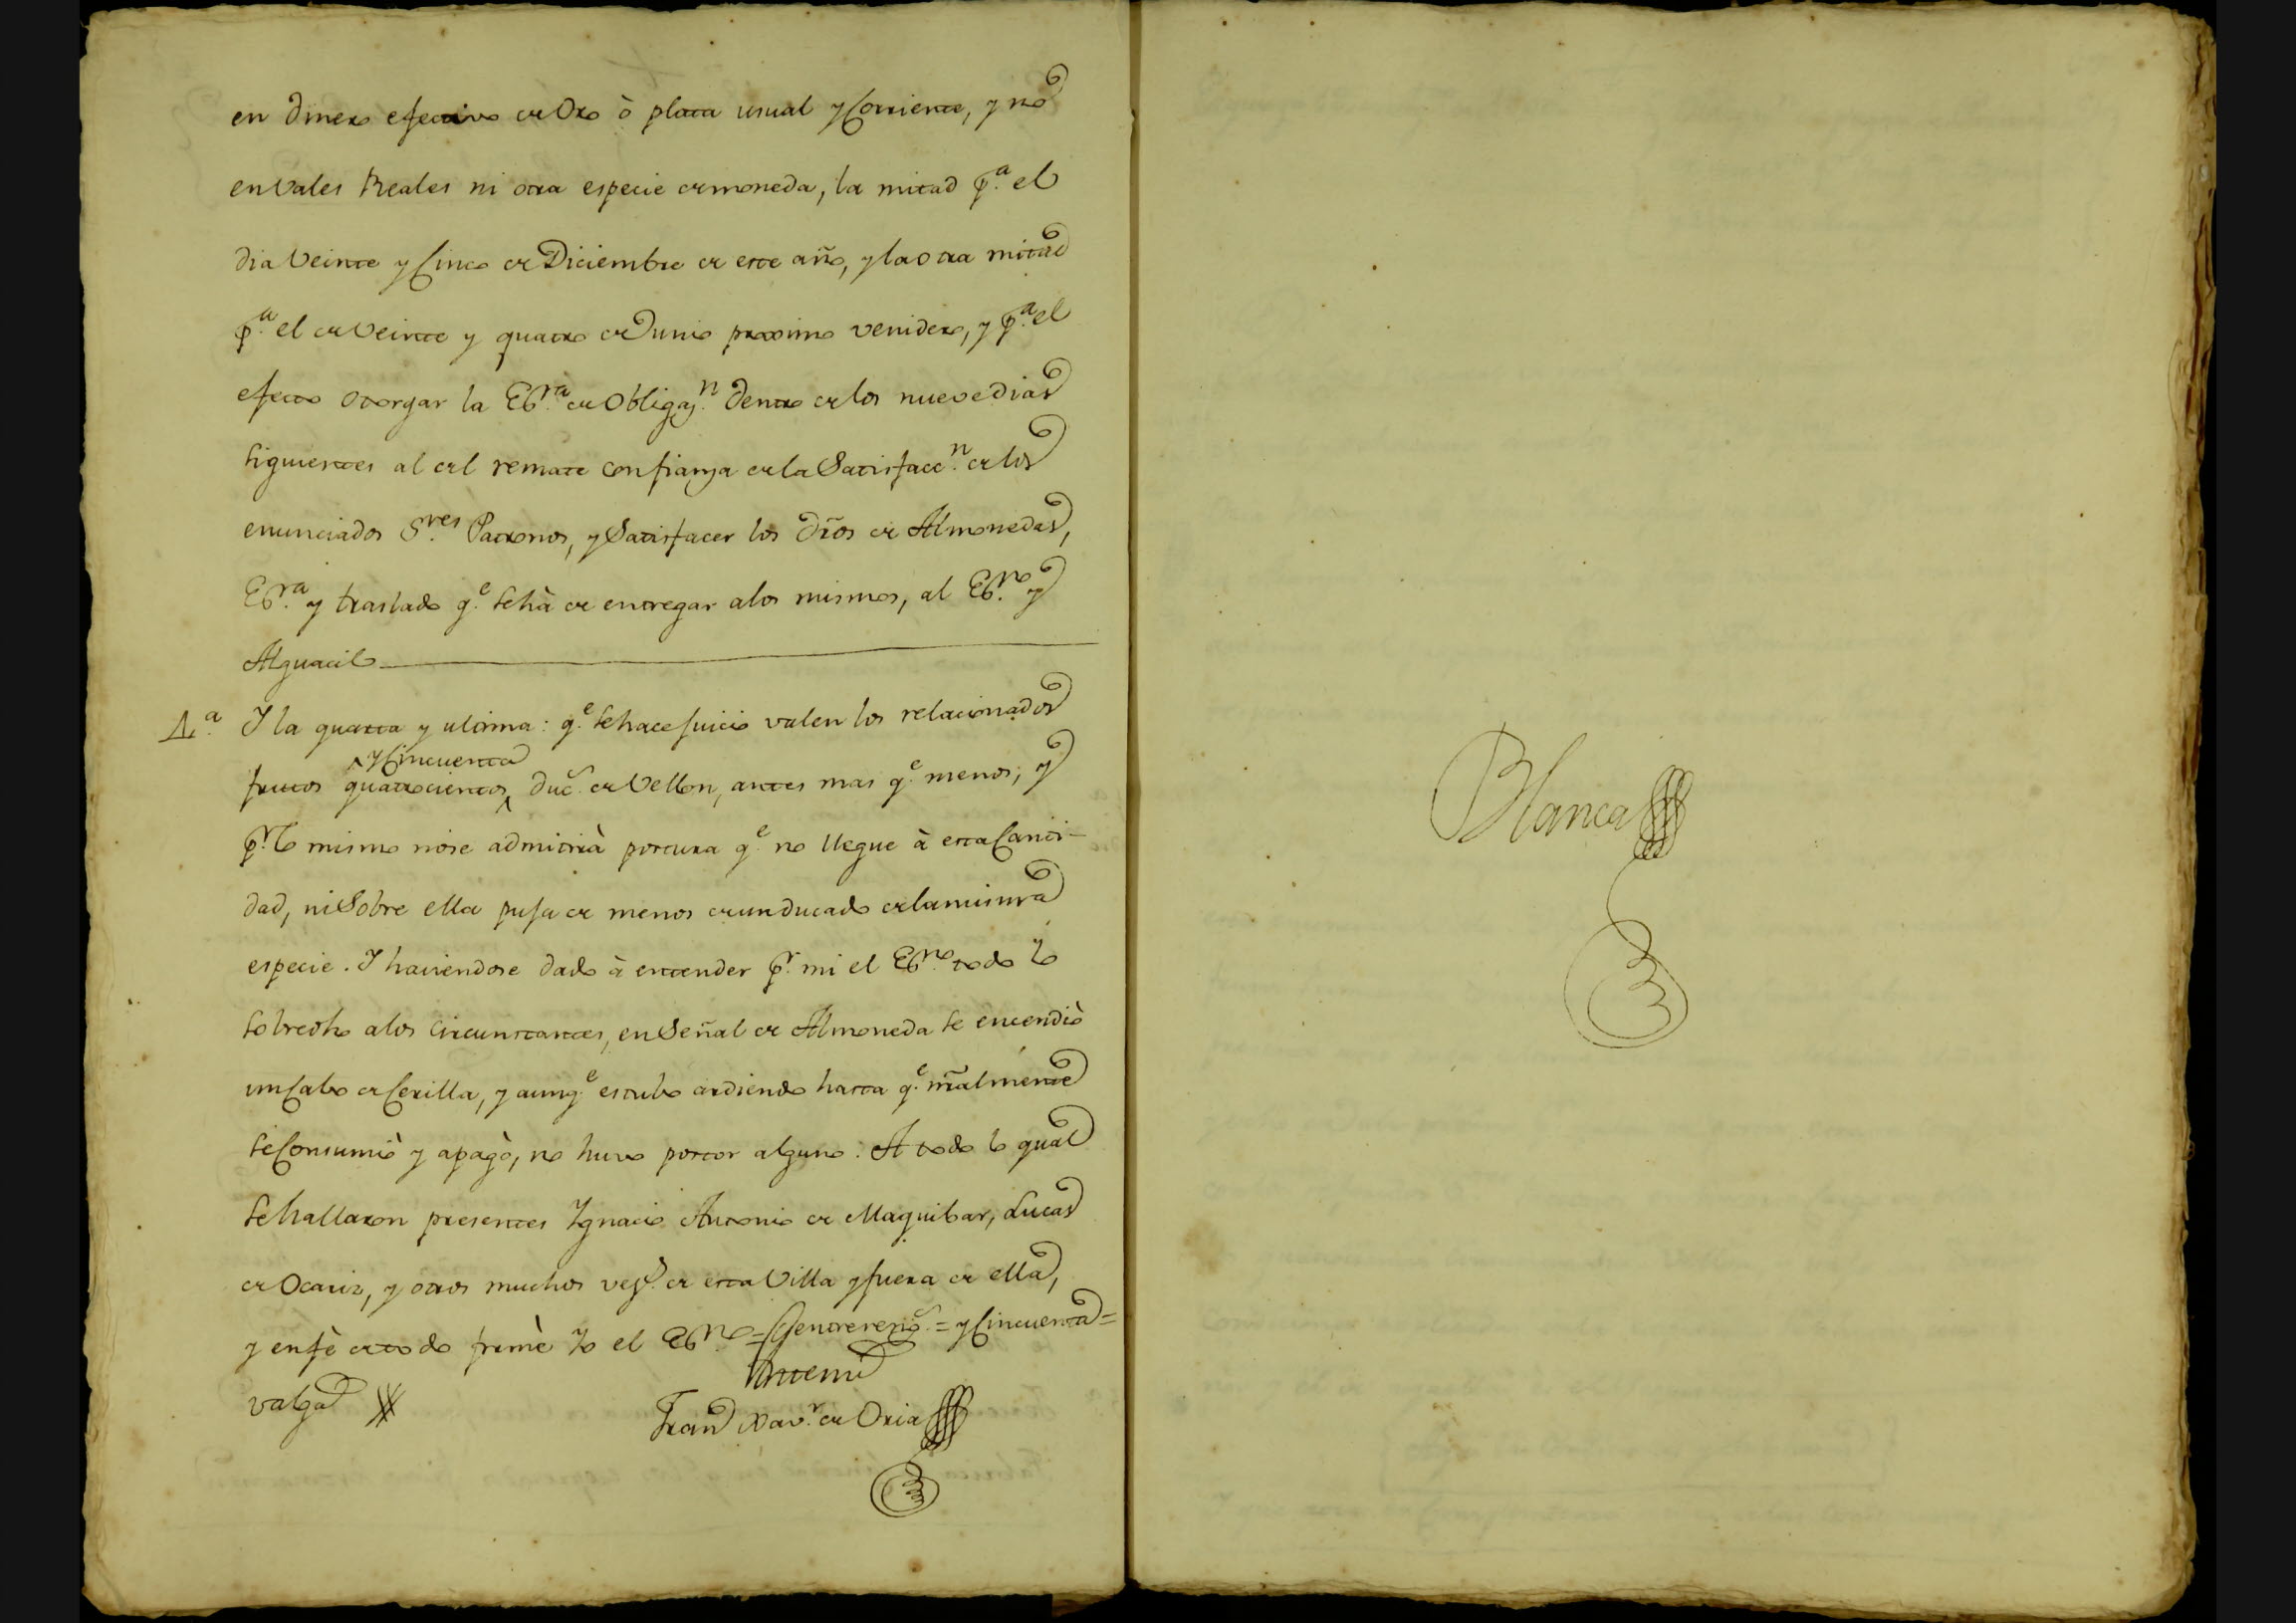 en dinero efectivo de Oro ò plata usual y Corriente, y no
en Vales Reales ni otra especie de moneda, la mitad p.ª el
dia Veinte y Cinco de Diciembre de este año, y la otra mitad
p.ª el de Veinte y quatro de Junio proximo venidero, y p.ª el
efecto otorgar la Esc.ra de Obligaz.n dentro de los nueve dias
siguientes al del remate con fianza de la Satisfacc.n de los
enunciados S.res Patronos, y Satisfacer los dr̃os de Almonedas,
Esc.ra y traslado q.e se hà de entregar a los mismos, al Esc.no y
Alguacil
4.ª Y la quarta y ultima: q.e se hace juicio valen los relacionados
^ y Cincuenta
frutos quatrocientos ^ duc.s de Vellon, antes mas q.e menos, y
p.r lo mismo no se admitirà postura q.e no llegue à esta Canti-
dad, ni Sobre ella puja de menos de un ducado de la misma
especie. Y haviendose dado à entender p.r mi el Esc.no todo lo
sobredho a los circunstantes, en Señal de Almoneda se encendiò
un Cabo de Cerilla, y aunq.e estubo ardiendo hasta q.e nr̃almente
se Consumiò y apagò, no huvo postor alguno: A todo lo qual
se hallaron presentes Ygnacio Antonio de Maguibar, Lucas
de Ocariz, y otros muchos vez.s de esta Villa y fuera de ella,
y en fè de todo firmè Yo el Esc.no = entrereng.s = y Cincuenta =
valga
Ante mi
Fran.co Xav.r de Oria
Blanca